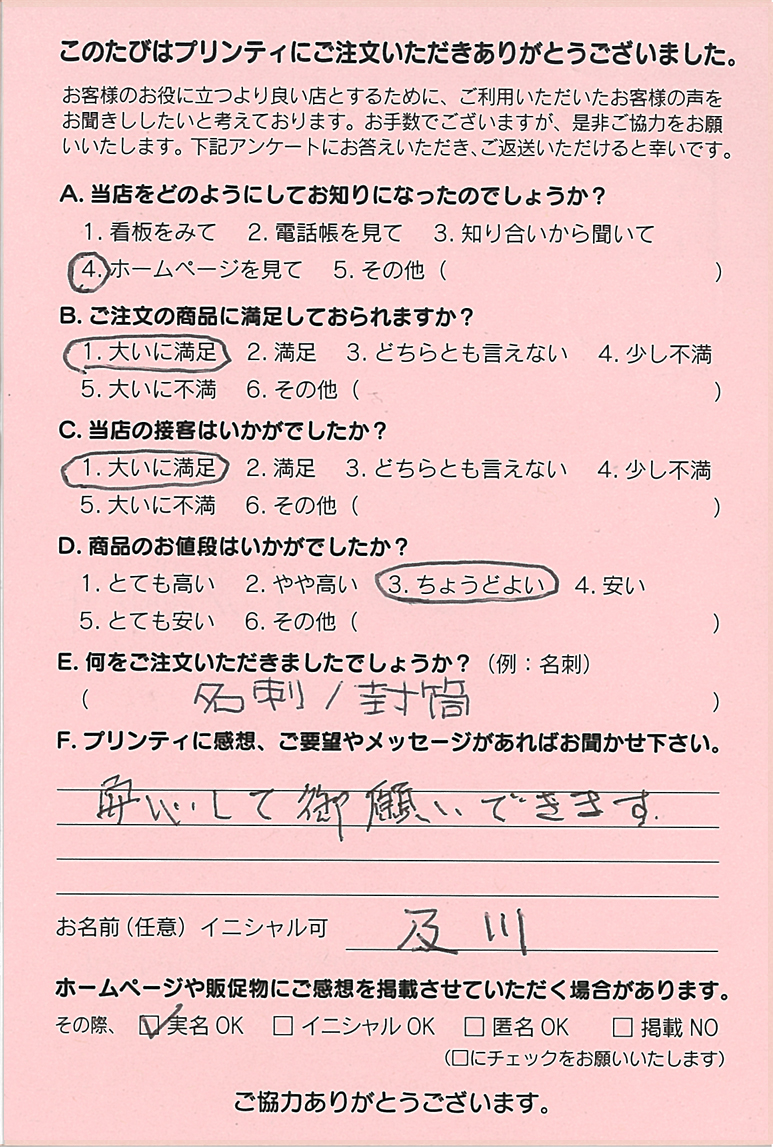 このたびはプリンティにご注文いただきありがとうございました。
お客様のお役に立つより良い店とするために、ご利用いただいたお客様の声を
お聞きししたいと考えております。お手数でございますが、是非ご協力をお願
いいたします。下記アンケートにお答えいただき、ご返送いただけると幸いです。
A. 当店をどのようにしてお知りになったのでしょうか？
1. 看板をみて 2. 電話帳を見て 3. 知り合いから聞いて
4. ホームページを見て 5. その他（ ）
B. ご注文の商品に満足しておられますか？
1. 大いに満足 2. 満足 3. どちらとも言えない 4. 少し不満
5. 大いに不満 6. その他（ ）
C. 当店の接客はいかがでしたか？
1. 大いに満足 2. 満足 3. どちらとも言えない 4. 少し不満
5. 大いに不満 6. その他（ ）
D. 商品のお値段はいかがでしたか？
1. とても高い 2. やや高い 3. ちょうどよい 4. 安い
5. とても安い 6. その他（ ）
E. 何をご注文いただきましたでしょうか？（例：名刺）
（ 名刺/封筒 ）
F. プリンティに感想、ご要望やメッセージがあればお聞かせ下さい。
安心して御願いできます.
お名前（任意）イニシャル可 及川
ホームページや販促物にご感想を掲載させていただく場合があります。
その際、 ☑実名OK □イニシャルOK □匿名OK □掲載NO
（□にチェックをお願いいたします）
ご協力ありがとうございます。